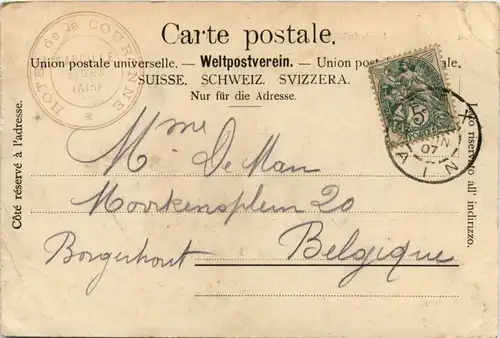 Carte postale.
Union postale universelle. — Weltpostverein. — Union postale universale.
SUISSE. SCHWEIZ. SVIZZERA.
Nur für die Adresse.
HOTEL de la COURONNE
(Ain)
5
AIN
07
Côté réservé à l'adresse.
Lato riservato all' indirizzo.
Mme De Man
Moorkensplein 20
Borgerhout Belgique